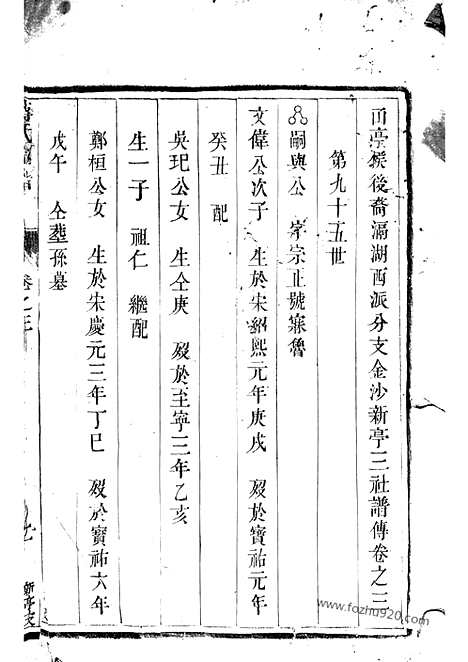 亭侯後裔滆湖西派分支金沙新亭三社譜傳卷之三
第九十五世
嗣興公 字宗正號寐魯
文偉公次子 生於宋紹熙元年庚戌 歿於寶祐元年
癸丑 配
吳玘公女 生仝庚 歿於至寧三年乙亥
生一子 祖仁 繼配
鄭桓公女 生於宋慶元三年丁巳 歿於寶祐六年
戊午 仝塟孫墓
卷之三
新亭支
www.fozhu920.com